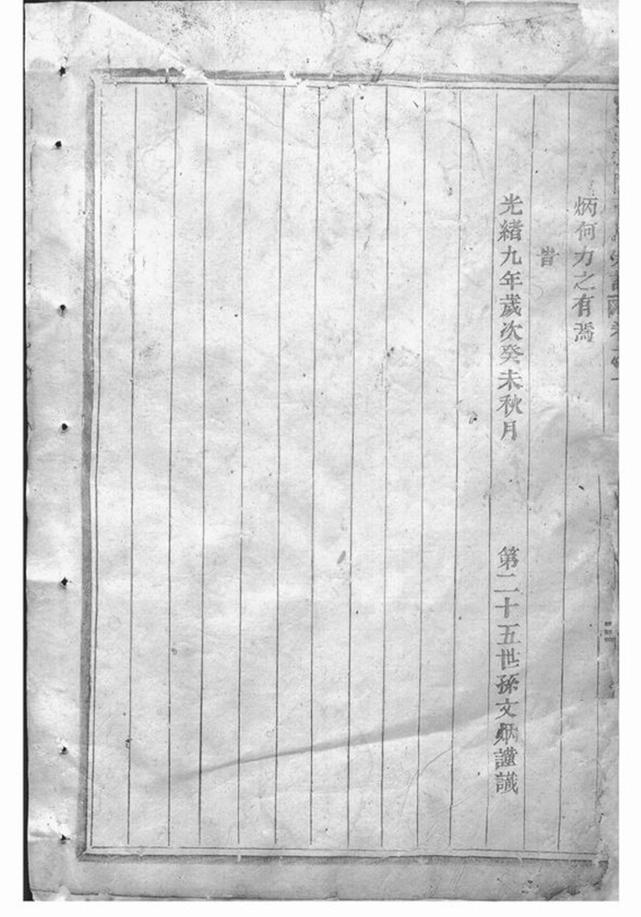 炳何力之有焉
旹
光緒九年歲次癸未秋月 第二十五世孫文炳謹識